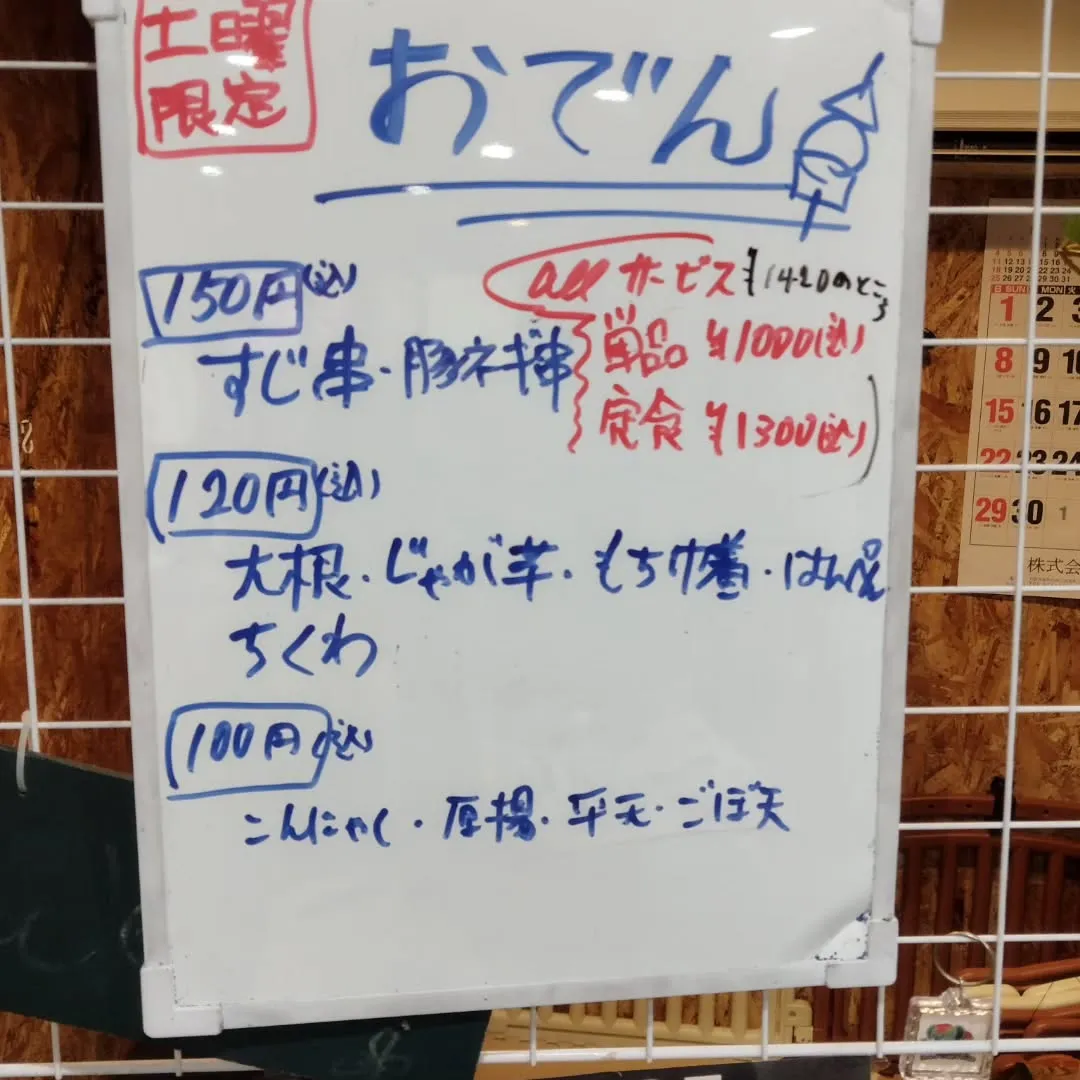 土曜
限定
おでん
150円(込)
すじ串・豚ネギ串
all サービス ¥1420のところ
単品 ¥1000(込)
定食 ¥1300(込)
120円(込)
大根・じゃが芋・もち巾着・はんぺん
ちくわ
100円(込)
こんにゃく・厚揚・平天・ごぼ天
SUN MON 火
1 2 3
8 9 10
15 16 17
22 23 24
29 30 1
株式会